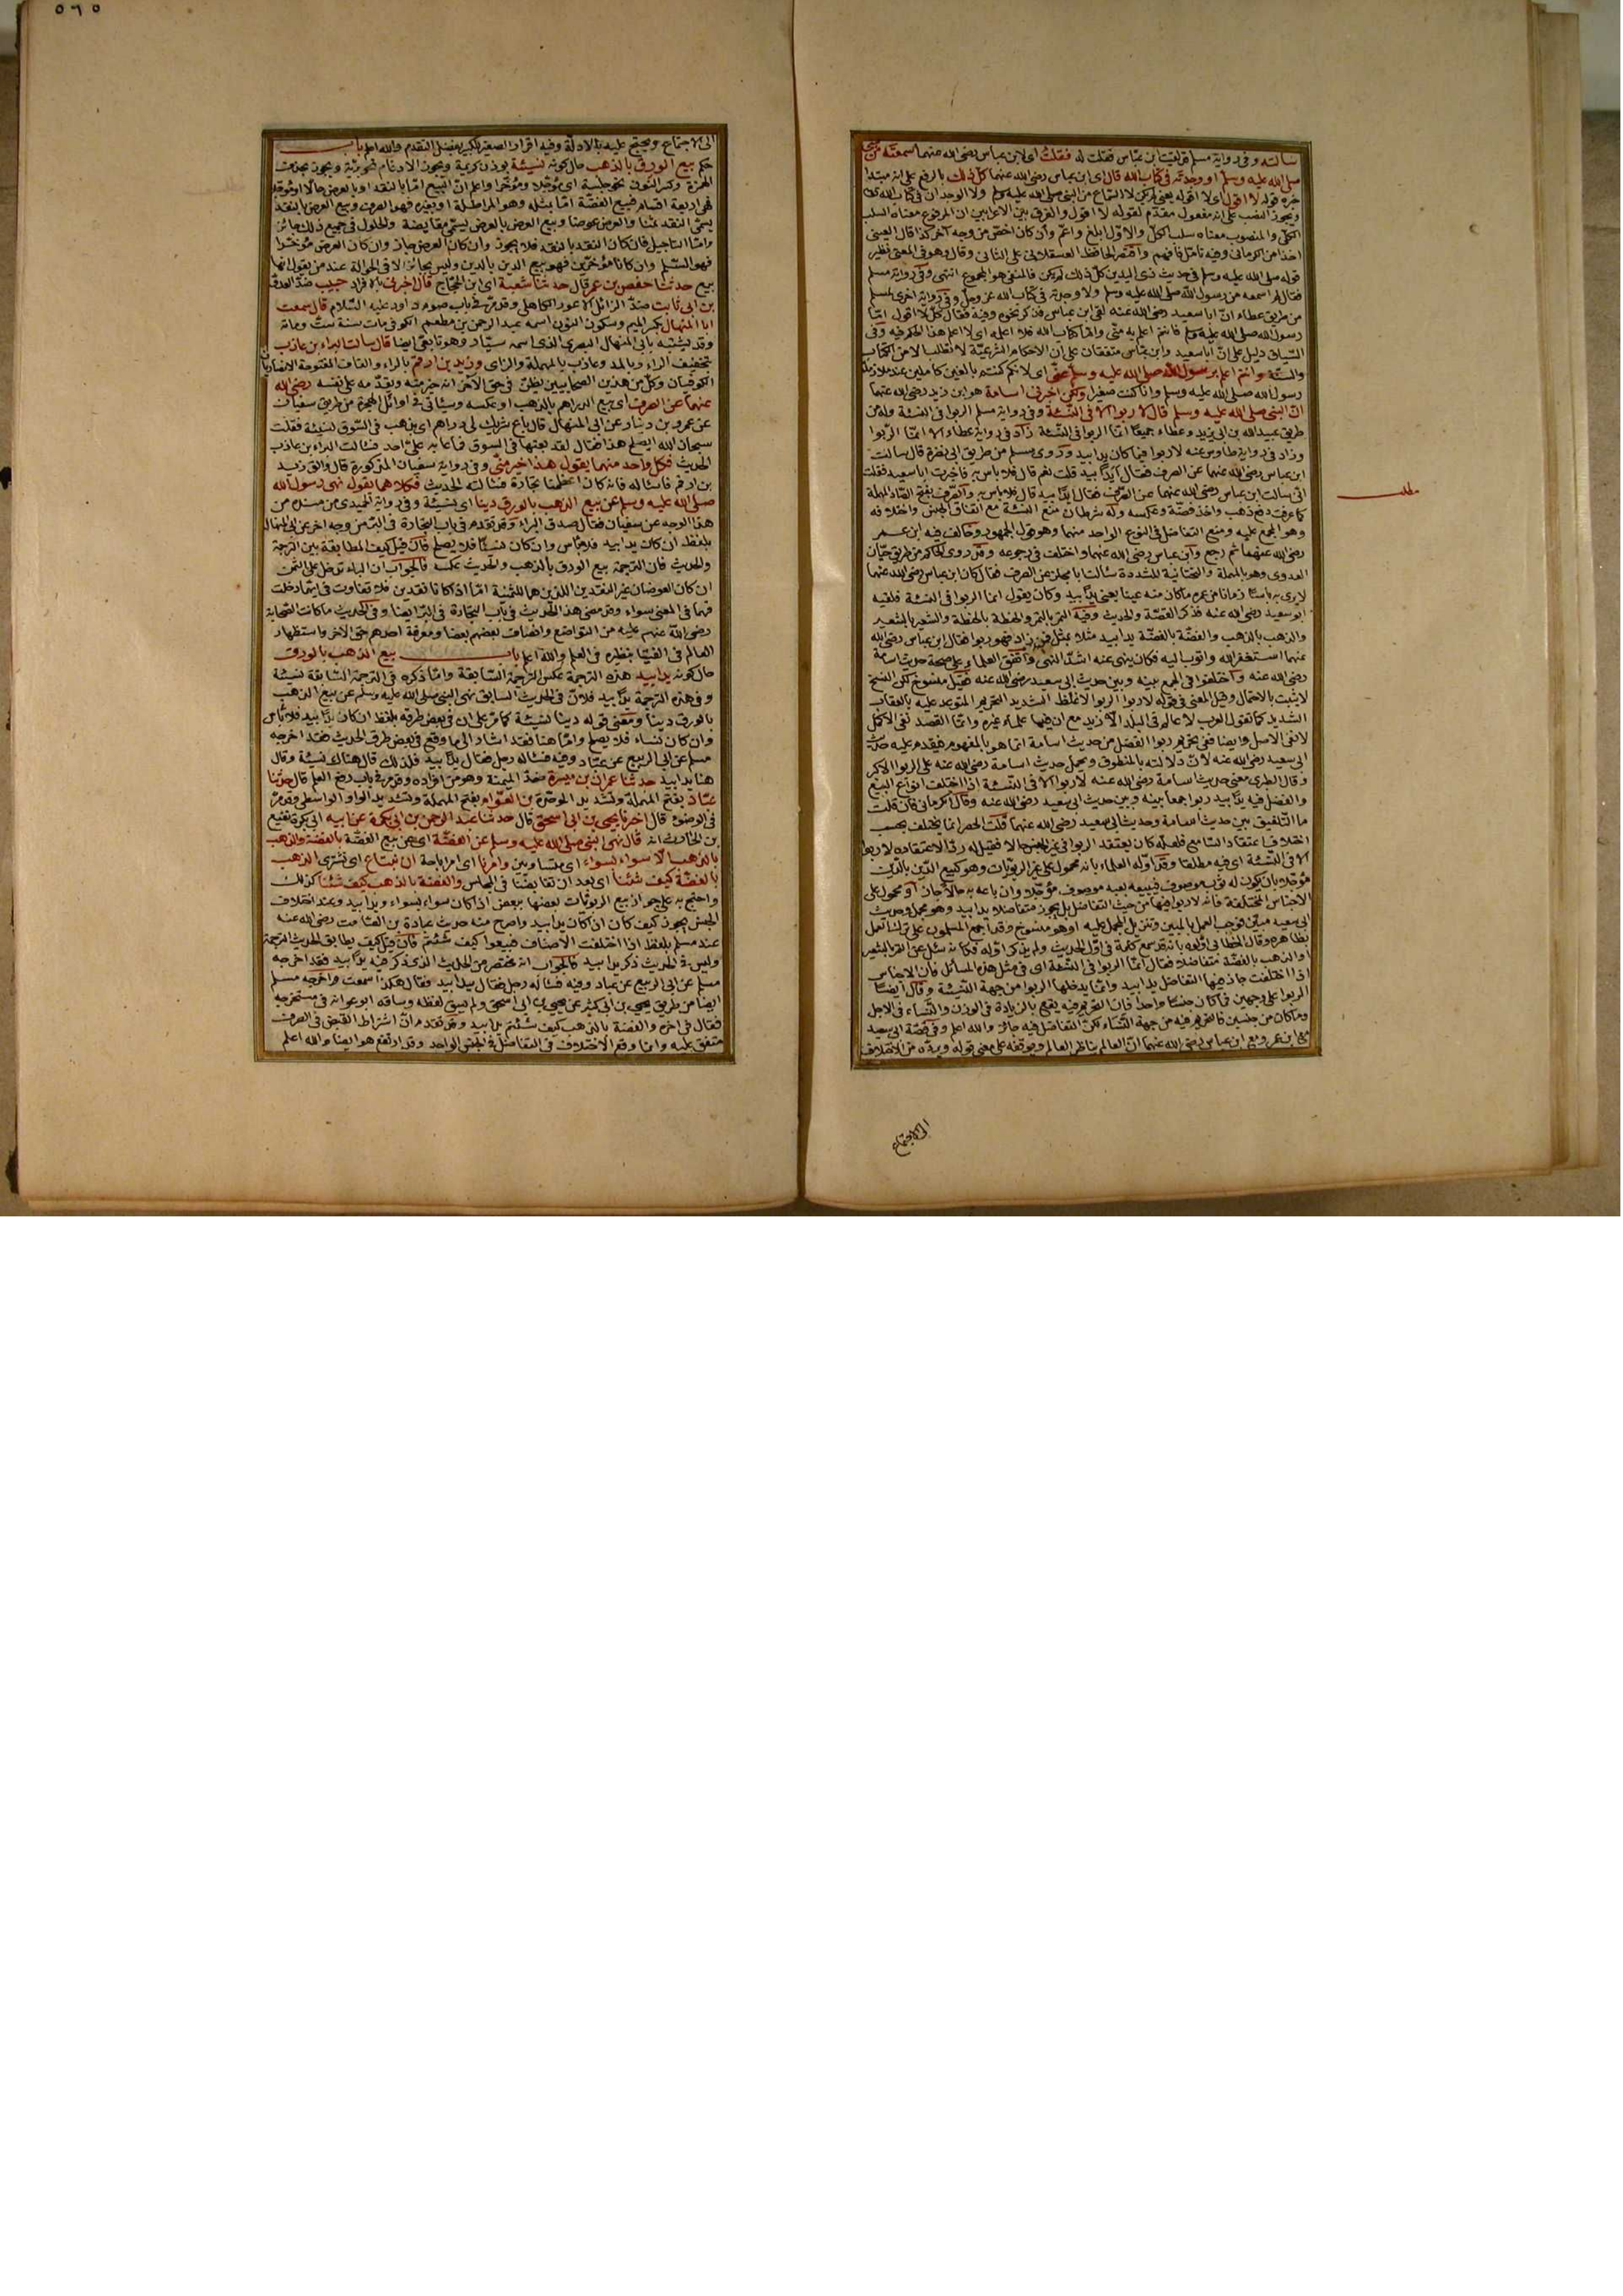 سالته وفى رواية مسلم قد لقيت ابن عباس فقلت له فقلت اى لابن عباس رضى الله عنهما سمعته من النبى
صلى الله عليه وسلم او وجدته فى كتاب الله قال اى ابن عباس رضى الله عنهما كل ذلك بالرفع على انه مبتدا
خبره قوله لا اقول اى لا اقوله يعنى لم يكن لا السماع من النبى صلى الله عليه وسلم ولا الوجدان فى كتاب الله تعالى
ويجوز النصب على انه مفعول مقدم لقوله لا اقول والفرق بين الاعرابين ان المرفوع معناه السلب
الكلى والمنصوب معناه سلب الكل والاول ابلغ واعم وان كان اخص من وجه آخر كذا قال العينى
اخذا من الكرمانى وفيه تامل فافهم واقتصر الحافظ العسقلانى على الثانى وقال وهو فى المعنى نظير
قوله صلى الله عليه وسلم فى حديث ذى اليدين كل ذلك لم يكن فالمنفى هو المجموع انتهى وفى رواية مسلم
فقال لم اسمعه من رسول الله صلى الله عليه وسلم ولا وجدته فى كتاب الله عز وجل وفى رواية اخرى لمسلم
من طريق عطاء ان ابا سعيد رضى الله عنه لقى ابن عباس فذكر نحوه وفيه فقال كل لا اقول اما
رسول الله صلى الله عليه وسلم فانتم اعلم به منى واما كتاب الله فلا اعلمه اى لا اعلم هذا الحكم فيه وفى
السياق دليل على ان ابا سعيد وابن عباس متفقان على ان الاحكام الشرعية لا تطلب الا من الكتاب
والسنة وانتم اعلم برسول الله صلى الله عليه وسلم منى اى لانكم كنتم بالغين كاملين عند ملازمة
رسول الله صلى الله عليه وسلم وانا كنت صغيرا ولكن اخبرنى اسامة هو ابن زيد رضى الله عنهما
ان النبى صلى الله عليه وسلم قال لا ربوا الا فى النسئة وفى رواية مسلم الربوا فى النسئة وله من
طريق عبيد الله بن ابى يزيد وعطاء جميعا انما الربوا فى النسئة زاد فى رواية عطاء الا انما الربوا
وزاد فى رواية طاوس عنه لا ربوا فيما كان يدا بيد وروى مسلم من طريق ابى نضرة قال سالت
ابن عباس رضى الله عنهما عن الصرف فقال ايدا بيد قلت نعم قال فلا باس به فاخبرت ابا سعيد فقلت
انى سالت ابن عباس رضى الله عنهما عن الصرف فقال ايدا بيد قال فلا باس به والصرف بفتح الصاد المهملة
كما عرفت دفع ذهب واخذ فضة وعكسه وله شرطان منع النسئة مع اتفاق الجنس واختلافه
وهو المجمع عليه ومنع التفاضل فى النوع الواحد منهما وهو قول الجمهور وخالف فيه ابن عمر
رضى الله عنهما ثم رجع وابن عباس رضى الله عنهما واختلف فى رجوعه وقد روى الحاكم من طريق حيان
العدوى وهو بالمهملة والتحتانية المشددة سالت ابا مجلز عن الصرف فقال كان ابن عباس رضى الله عنهما
لا يرى به باسا زمانا من عمره ما كان منه عينا بعين يدا بيد وكان يقول انما الربوا فى النسئة فلقيه
ابو سعيد رضى الله عنه فذكر القصة والحديث وفيه التمر بالتمر والحنطة بالحنطة والشعير بالشعير
والذهب بالذهب والفضة بالفضة يدا بيد مثلا بمثل فمن زاد فهو ربوا فقال ابن عباس رضى الله
عنهما استغفر الله واتوب اليه فكان ينهى عنه اشد النهى واتفق العلماء على صحة حديث اسامة
رضى الله عنه واختلفوا فى الجمع بينه وبين حديث ابى سعيد رضى الله عنه فقيل منسوخ لكن النسخ
لا يثبت بالاحتمال وقيل المعنى فى قوله لا ربوا الربوا الاغلظ الشديد التحريم المتوعد عليه بالعقاب
الشديد كما تقول العرب لا عالم فى البلد الا زيد مع ان فيها علماء غيره وانما القصد نفى الاكمل
لا نفى الاصل وايضا فنفى تحريم ربوا الفضل من حديث اسامة انما هو بالمفهوم فيقدم عليه حديث
ابى سعيد رضى الله عنه لان دلالته بالمنطوق ويحمل حديث اسامة رضى الله عنه على الربوا الاكبر
وقال الطبرى معنى حديث اسامة رضى الله عنه لا ربوا الا فى النسئة اذا اختلف انواع البيع
والفضل فيه يدا بيد ربوا جمعا بينه وبين حديث ابى سعيد رضى الله عنه وقال الكرمانى فان قلت
ما التلفيق بين حديث اسامة وحديث ابى سعيد رضى الله عنهما قلت الحصر انما يختلف بحسب
اختلاف اعتقاد السامع فلعله كان يعتقد الربوا فى غير الجنس حالا فقيل له ردا لاعتقاده لا ربوا
الا فى النسئة اى فيه مطلقا وقد اوله العلماء بانه محمول على غير الربويات وهو كبيع الدين بالدين
مؤجلا بان يكون له ثوب موصوف فيبيعه بعبد موصوف مؤجلا وان باعه به حالا جاز او محمول على
الاجناس المختلفة فانه لا ربوا فيها من حيث التفاضل بل يجوز متفاضلا يدا بيد وهو مجمل وحديث
ابى سعيد مبين فوجب العمل بالمبين وتنزيل المجمل عليه او هو منسوخ وقد اجمع المسلمون على ترك العمل
بظاهره وقال الخطابى اوّلوه بانه قد سمع كلمة فى اول الحديث ولم يذكر اوله فكانه سئل عن التمر بالشعير
او الذهب بالفضة متفاضلا فقال انما الربوا فى النسئة اى فى مثل هذه المسائل فان الاجناس
اذا اختلفت جاز فيها التفاضل يدا بيد وانما يدخلها الربوا من جهة النسيئة وقال ايضا
الربوا على وجهين فما كان جنسا واحدا فان التحريم فيه يقع بالزيادة فى الوزن والنساء فى الاجل
وما كان من جنسين فالتحريم فيه من جهة النساء لكن التفاضل فيه جائز والله اعلم وفى قصة ابى سعيد
مع ابن عمر ومع ابن عباس رضى الله عنهما ان العالم يناظر العالم ويوقفه على معنى قوله ويرده من الاختلاف
الى الاجتماع
مطلب
٥٦٥
الى الاجتماع ويحتج عليه بالادلة وفيه اقرار الصغير للكبير بفضل التقدم والله اعلم باب
حكم بيع الورق بالذهب حال كونه نسيئة بوزن كريمة ويجوز الادغام نحو برية ويجوز بحذف
الهمزة وكسر النون نحو جلسة اى مؤجلا ومؤخرا واعلم ان البيع اما بالنقد او بالعرض حالا او مؤجلا
فهى اربعة اقسام فبيع الفضة اما بمثله وهو المراطلة او بغيره فهو الصرف وبيع العرض بالنقد
يسمى النقد ثمنا والعرض عوضا وبيع العرض بالعرض يسمى مقايضة والحلول فى جميع ذلك جائز
واما التاجيل فان كان النقد بالنقد فلا يجوز وان كان العرض جاز وان كان العرض مؤخرا
فهو السلم وان كانا مؤخرين فهو بيع الدين بالدين وليس بجائز الا فى الحوالة عند من يقول انها
بيع حدثنا حفص بن عمر قال حدثنا شعبة اى ابن الحجاج قال اخبرنى بالافراد حبيب ضد العدو
بن ابى ثابت ضد الزائل الاعور الكاهلى وقد مر فى باب صوم داود عليه السلام قال سمعت
ابا المنهال بكسر الميم وسكون النون اسمه عبد الرحمن بن مطعم الكوفى مات سنة ست ومائة
وقد يشتبه بابى المنهال البصرى الذى اسمه سيار وهو تابعى ايضا قال سالت البراء بن عازب
بتخفيف الراء وبالمد وعازب بالمهملة والزاى وزيد بن ارقم بالراء والقاف المفتوحة الانصاريان
الكوفيان وكل من هذين الصحابيين يظن فى حق الآخر انه خير منه ويقدمه على نفسه رضى الله
عنهما عن الصرف اى بيع الدراهم بالذهب او عكسه وسياتى فى اوائل الهجرة من طريق سفيان
عن عمرو بن دينار عن ابى المنهال قال باع شريك لى دراهم اى بذهب فى السوق نسيئة فقلت
سبحان الله ايصلح هذا فقال لقد بعتها فى السوق فما عابه على احد فسالت البراء بن عازب
الحديث فكل واحد منهما يقول هذا خير منى وفى رواية سفيان المذكورة قال والق زيد
بن ارقم فاسئاله فانه كان اعظمنا تجارة فسالته الحديث فكلاهما يقول نهى رسول الله
صلى الله عليه وسلم عن بيع الذهب بالورق دينا اى نسيئة وفى رواية الحميدى من مسنده من
هذا الوجه عن سفيان فقال صدق البراء وقد تقدم فى باب التجارة فى البز من وجه اخر عن ابى المنهال
بلفظ ان كان يدا بيد فلا باس وان كان نسيئا فلا يصلح فان قيل كيف المطابقة بين الترجمة
والحديث فان الترجمة بيع الورق بالذهب والحديث عكسه فالجواب ان الباء تدخل على الثمن
ان كان العوضان غير النقدين اللذين هما للثمنية اما اذا كانا نقدين فلا تفاوت فى ايهما دخلت
فهما فى المعنى سواء وقد مضى هذا الحديث فى باب التجارة فى البز ايضا وفى الحديث ما كانت الصحابة
رضى الله عنهم عليه من التواضع وانصاف بعضهم بعضا ومعرفة احدهم حق الآخر واستظهار
العالم فى الفتيا بنظيره فى العلم والله اعلم باب بيع الذهب بالورق
حال كونه يدا بيد هذه الترجمة عكس الترجمة السابقة وانما ذكره فى الترجمة السابقة نسيئة
وفى هذه الترجمة يدا بيد فلان فى الحديث السابق نهى النبى صلى الله عليه وسلم عن بيع الذهب
بالورق دينا ومعنى قوله دينا نسيئة كما مر على ان فى بعض طرقه بلفظ ان كان يدا بيد فلا باس
وان كان نساء فلا يصلح واما هنا فقد اشار الى ما وقع فى بعض طرق الحديث فقد اخرجه
مسلم عن ابى الربيع عن عباد وفيه فساله رجل فقال يدا بيد فلذلك قال هناك نسيئة وقال
هنا يدا بيد حدثنا عمران بن ميسرة ضد الميمنة وهو من افراده وقد مر فى باب رفع العلم قال حدثنا
عباد بفتح المهملة وتشديد الموحدة بن العوام بفتح المهملة وتشديد الواو الواسطى وقد مر
فى الوضوء قال اخبرنا يحيى بن ابى اسحق قال حدثنا عبد الرحمن بن ابى بكرة عن ابيه ابى بكرة نفيع
بن الحارث انه قال نهى النبى صلى الله عليه وسلم عن الفضة اى عن بيع الفضة بالفضة والذهب
بالذهب الا سواء بسواء اى متساويين وامرنا اى امر اباحة ان نبتاع اى نشترى الذهب
بالفضة كيف شئنا اى بعد ان تقابضنا فى المجلس والفضة بالذهب كيف شئنا كذلك
واحتج به على جواز بيع الربويات بعضها ببعض اذا كان سواء بسواء ويدا بيد وعند اختلاف
الجنس يجوز كيف كان اذا كان يدا بيد واصرح منه حديث عبادة بن الصامت رضى الله عنه
عند مسلم بلفظ اذا اختلفت الاصناف فبيعوا كيف شئتم فان قيل كيف يطابق الحديث الترجمة
وليس فى الحديث ذكر يدا بيد فالجواب انه مختصر من الحديث الذى ذكر فيه يدا بيد فقد اخرجه
مسلم عن ابى الربيع عن عباد وفيه فساله رجل فقال يدا بيد فقال هكذا سمعت واخرجه مسلم
ايضا من طريق يحيى بن ابى كثير عن يحيى بن ابى اسحق ولم يسق لفظه وساقه ابو عوانة فى مستخرجه
فقال فى اخره والفضة بالذهب كيف شئتم يدا بيد وقد تقدم ان اشتراط القبض فى الصرف
متفق عليه وانما وقع الاختلاف فى التفاضل فى الجنس الواحد وقد ارتفع هو ايضا والله اعلم